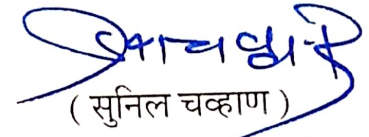 ( सुनिल चव्हाण )